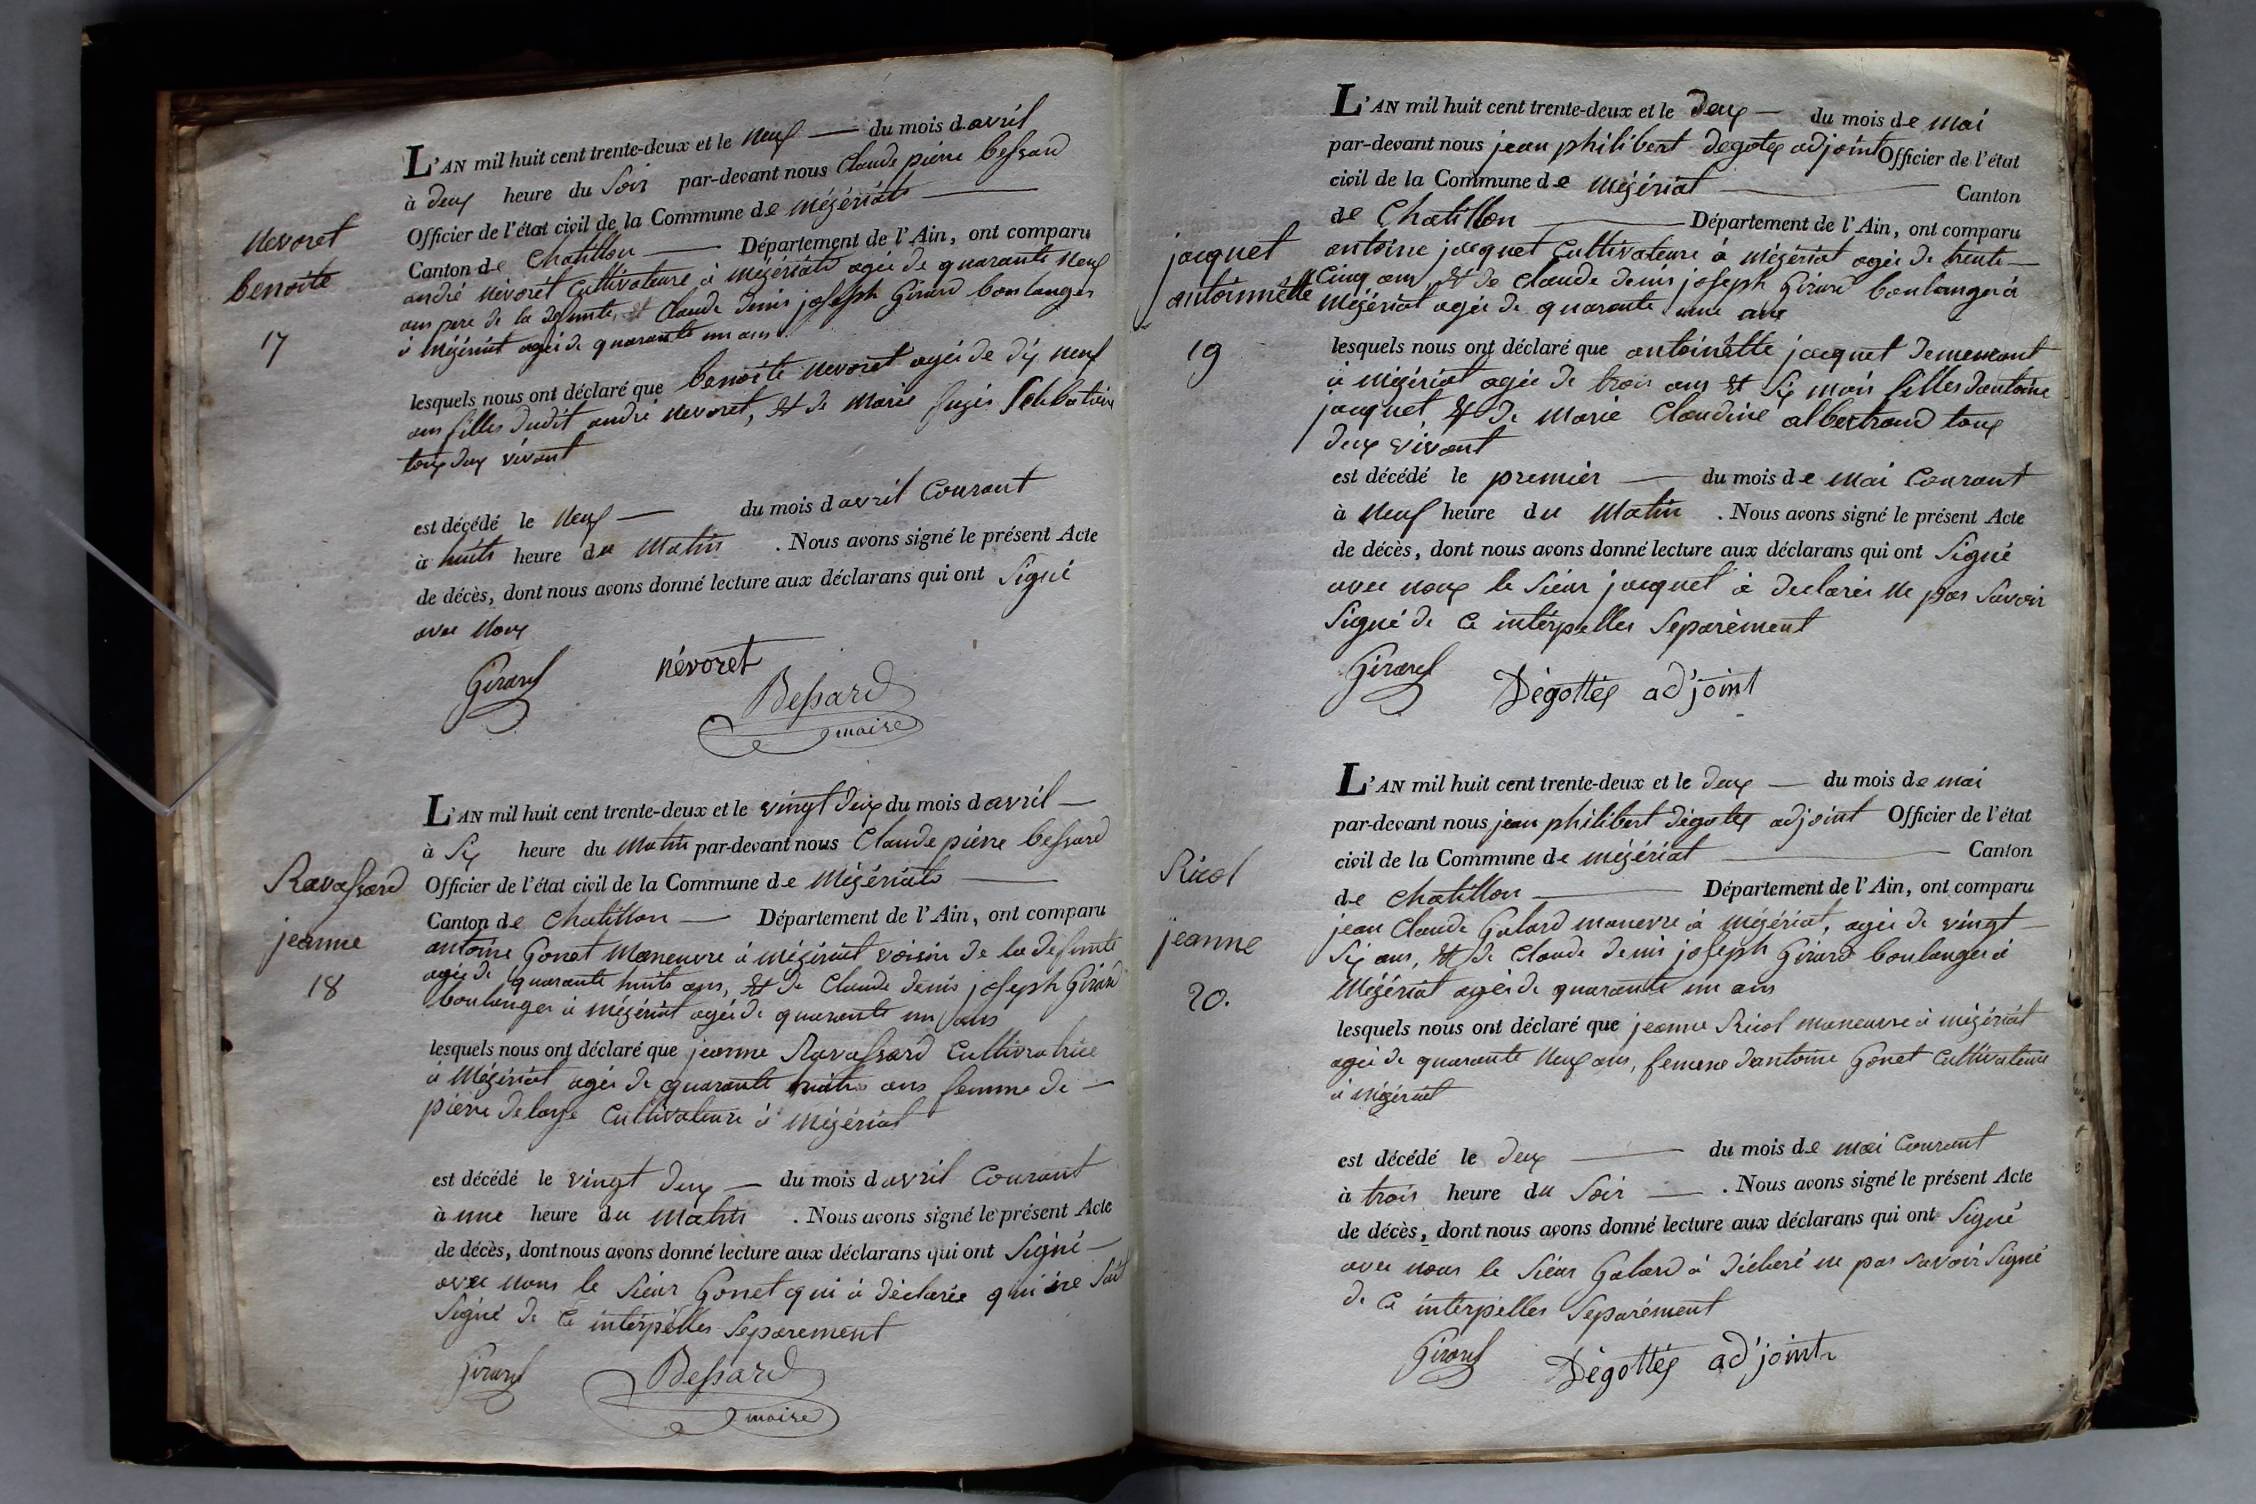 L'AN mil huit cent trente-deux et le neuf — du mois d avril
à deux heure du Soir par-devant nous Claude pierre bessard
Officier de l'état civil de la Commune de mézériat
Canton de Chatillon — Département de l'Ain, ont comparu
andré névorét Cultivateure à mézériat agée de quarante neuf
ans pere de la defunte, et Claude denis joseph Girard boulanger
à mézériat agée de quarante un ans
lesquels nous ont déclaré que benoite nevoret agée de dix neuf
ans filles dudit andré nevoret, et de marie
toux deux vivant
est décédé le neuf — du mois d avril Courant
à huits heure du matin . Nous avons signé le présent Acte
de décès, dont nous avons donné lecture aux déclarans qui ont Signé
avec noux
Girard névoret Bessard
maire
nevoret
benoite
17
L'AN mil huit cent trente-deux et le vingt deux du mois d avril —
à Six heure du matin par-devant nous Claude pierre bessard
Officier de l'état civil de la Commune de mézériat —
Canton de Chatillon — Département de l'Ain, ont comparu
antoine Gonet maneuvre à mézériat voisin de la defunte
agée de quarante huits ans, et de Claude denis joseph Girard
boulanger à mézériat agée de quarante un ans
lesquels nous ont déclaré que jeanne Ravassard Cultivatrice
à Mézériat agée de quarante ans femme de —
pierre Cultivateure à mézériat
est décédé le vingt deux — du mois d avril Courant
à une heure du matin . Nous avons signé le présent Acte
de décès, dont nous avons donné lecture aux déclarans qui ont Signé —
avec nous le Sieur Gonet qui à déclarée qui ne Sait
Signé de Ce interpelles Separement
Girard Bessard
maire
Ravassard
jeanne
18
L'AN mil huit cent trente-deux et le deux — du mois de mai
par-devant nous jean philibert degotex adjoint Officier de l'état
civil de la Commune de mézériat — Canton
de Chatillon — Département de l'Ain, ont comparu
antoine jacquet Cultivateure à mézériat agée de trente —
Cinq ans et de Claude denis joseph Girard boulanger à
mézériat agée de quarante une ans
lesquels nous ont déclaré que antoinette jacquet demeurant
à mézériat agée de trois ans et Six mois filles dantoine
jacquet, et de marie Claudine albertrand toux
deux vivant
est décédé le premier — du mois de mai Courant
à neuf heure du Matin . Nous avons signé le présent Acte
de décès, dont nous avons donné lecture aux déclarans qui ont Signé
avec noux le Sieur jacquet à declarée ne pas Savoir
Signé de Ce interpelles Separément
Girard Dégottéx ad'joint
jacquet
antoinnette
19
L'AN mil huit cent trente-deux et le deux — du mois de mai
par-devant nous jean philibert dégotex adjoint Officier de l'état
civil de la Commune de mézériat — Canton
de chatillon — Département de l'Ain, ont comparu
jean Claude Galard manevre à mézériat, agée de vingt —
Six ans, et de Claude denis joseph Girard boulanger à
Mézériat agée de quarante un ans
lesquels nous ont déclaré que jeanne Ricol maneuvre à mézériat
agée de quarante neuf ans, femme dantoine Gonet Cultivateure
à mézériat
est décédé le deux — du mois de mai Courant
à trois heure du Soir — . Nous avons signé le présent Acte
de décès, dont nous avons donné lecture aux déclarans qui ont Signé
avec nous le Sieur Galard à déclaré ne pas savoir Signé
de Ce interpelles Separément
Girard Dégottéx ad'joint
Ricol
jeanne
20.